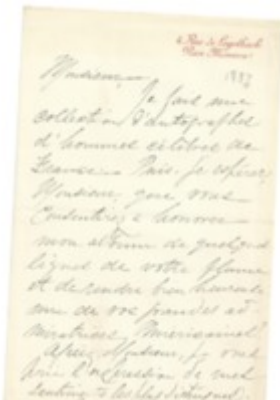 4 Rue de Logelbach
Parc Monceau
1887
Monsieur,
Je fais une
collection d'autographes
d'hommes célèbres de
France. Puis-je espérer,
Monsieur, que vous
consentirez à honorer
mon album de quelques
lignes de votre plume
et de rendre bien heureuse
une de vos grandes ad-
miratrices Américaines?
Agréez Monsieur, je vous
prie l'expression de mes
sentiments les plus distingués